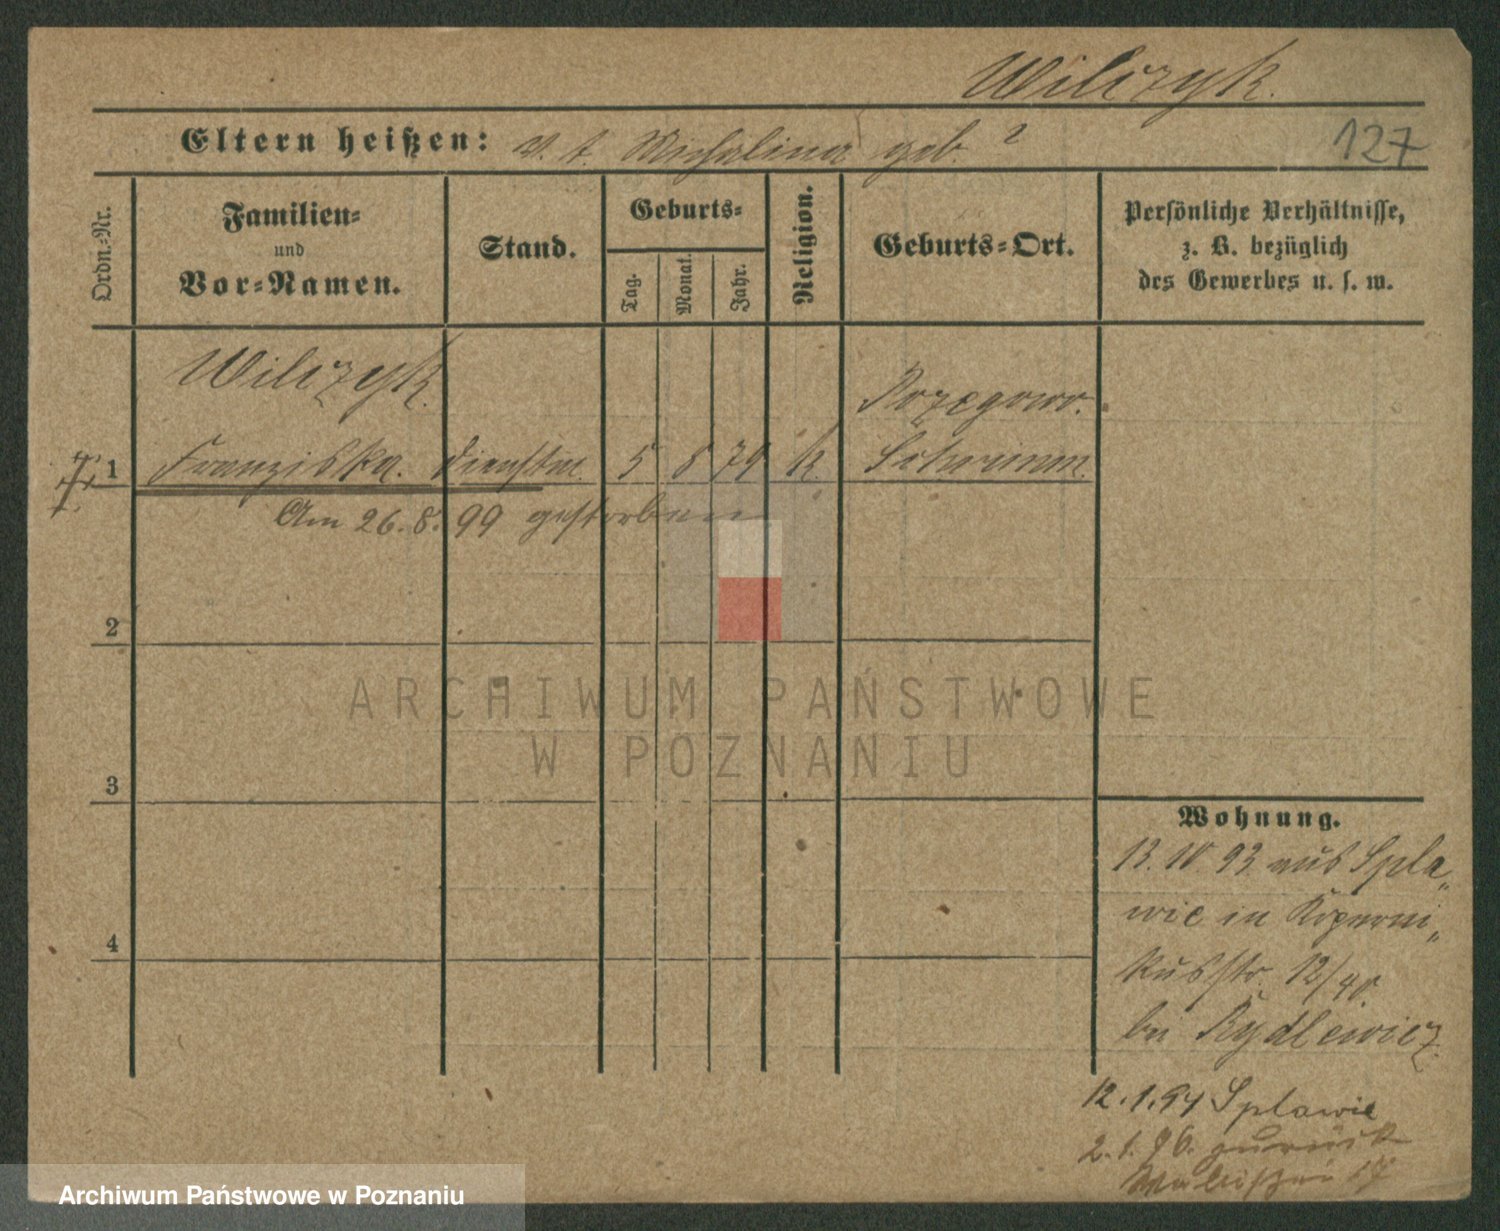 Wilczyk.
Eltern heißen: v. t. Michalina geb. ?
127
Ordn.-Nr.
Familien-
und
Vor-Namen.
Stand.
Geburts-
Tag.
Monat.
Jahr.
Religion.
Geburts-Ort.
Persönliche Verhältnisse,
z. B. bezüglich
des Gewerbes u. s. w.
Wilczyk.
1 Franziska. Dienstm. 5 8 79 k.
Schrimm.
Am 26.8.99 gestorben
2
3
4
ARCHIWUM PAŃSTWOWE
W POZNANIU
Wohnung.
13.10.93 aus Spla„
wie in Koperni„
kusstr. 12/
bei Rydlewicz
12.1.94 Splawie
2.1.96. zurück
Wallischei 17
Archiwum Państwowe w Poznaniu